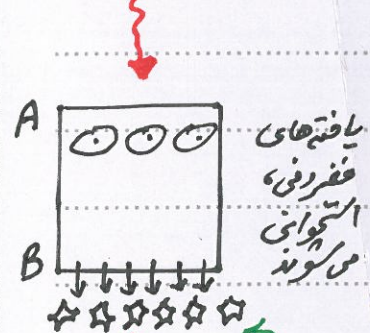 A
B
یافته‌های
غضروفی،
استخوانی
می‌شوند